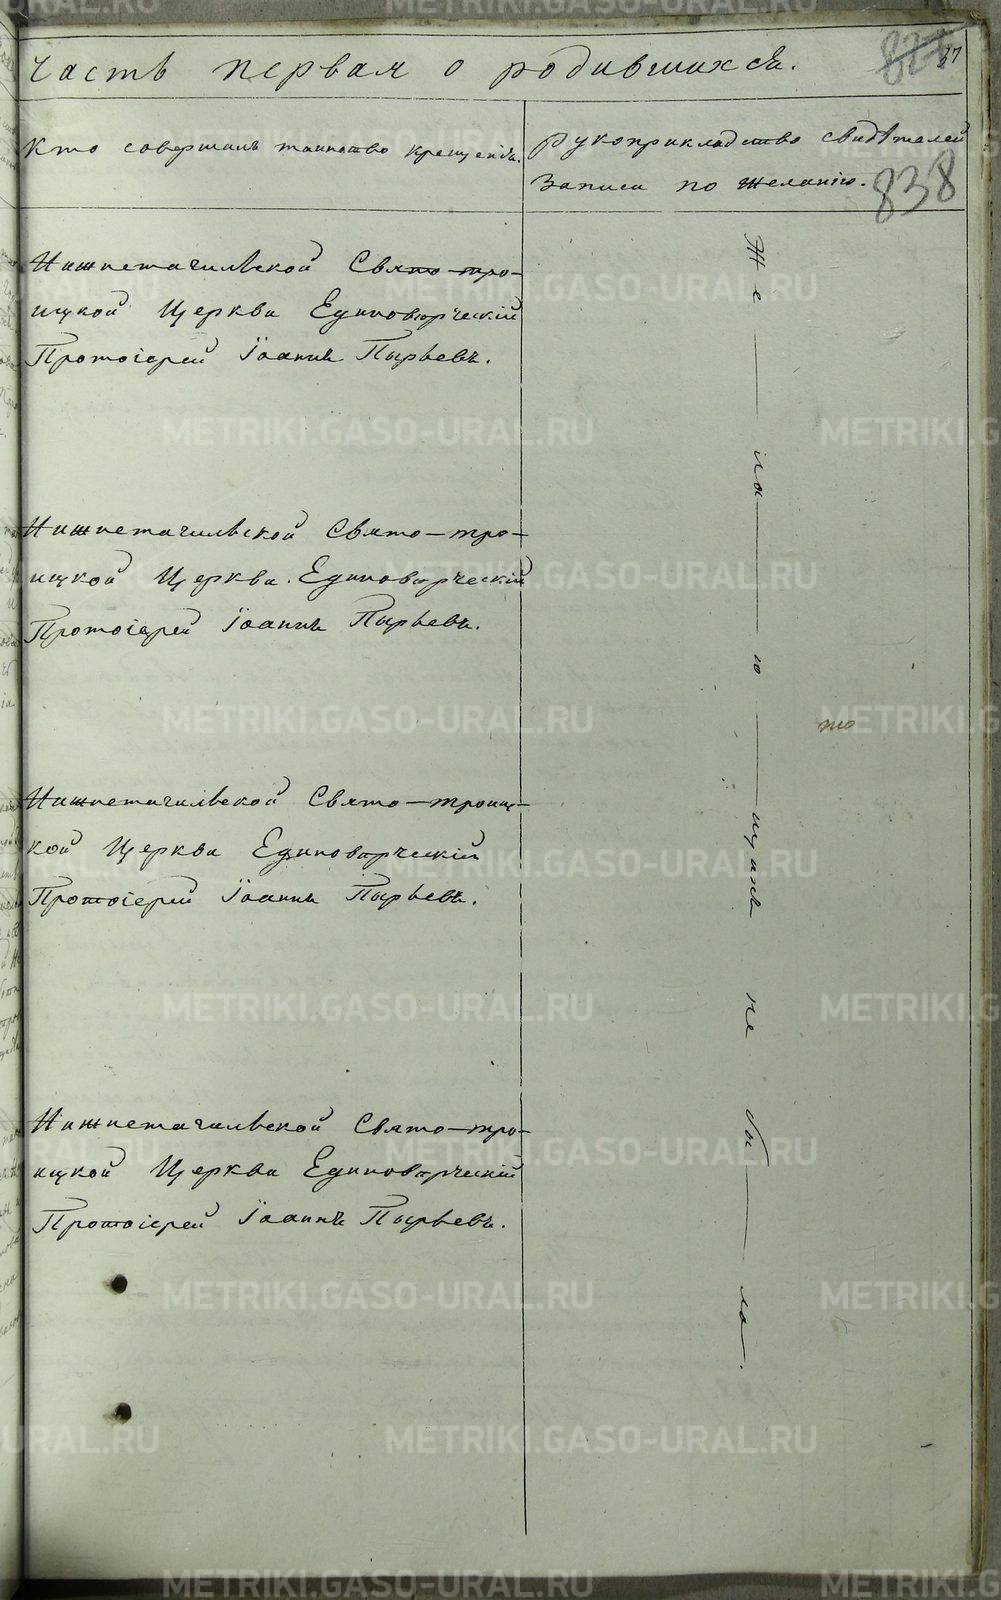 Часть первая о родившихся.
827
37
Кто совершалъ таинство крещенія.
Рукоприкладство свидѣталей
записи по желанію.
838
Нижнетагильской Свято-тро-
ицкой Церкви Единоверческій
Протоіерей Іоаннъ Пырьевъ.
Нижнетагильской Свято-тро-
ицкой Церкви Единоверческій
Протоіерей Іоаннъ Пырьевъ.
Нижнетагильской Свято-троиц-
кой Церкви Единоверческій
Протоіерей Іоаннъ Пырьевъ.
Нижнетагильской Свято-тро-
ицкой Церкви Единоверческій
Протоіерей Іоаннъ Пырьевъ.
Же—ла—ю—щихъ не бы—ло.
METRIKI.GASO-URAL.RU